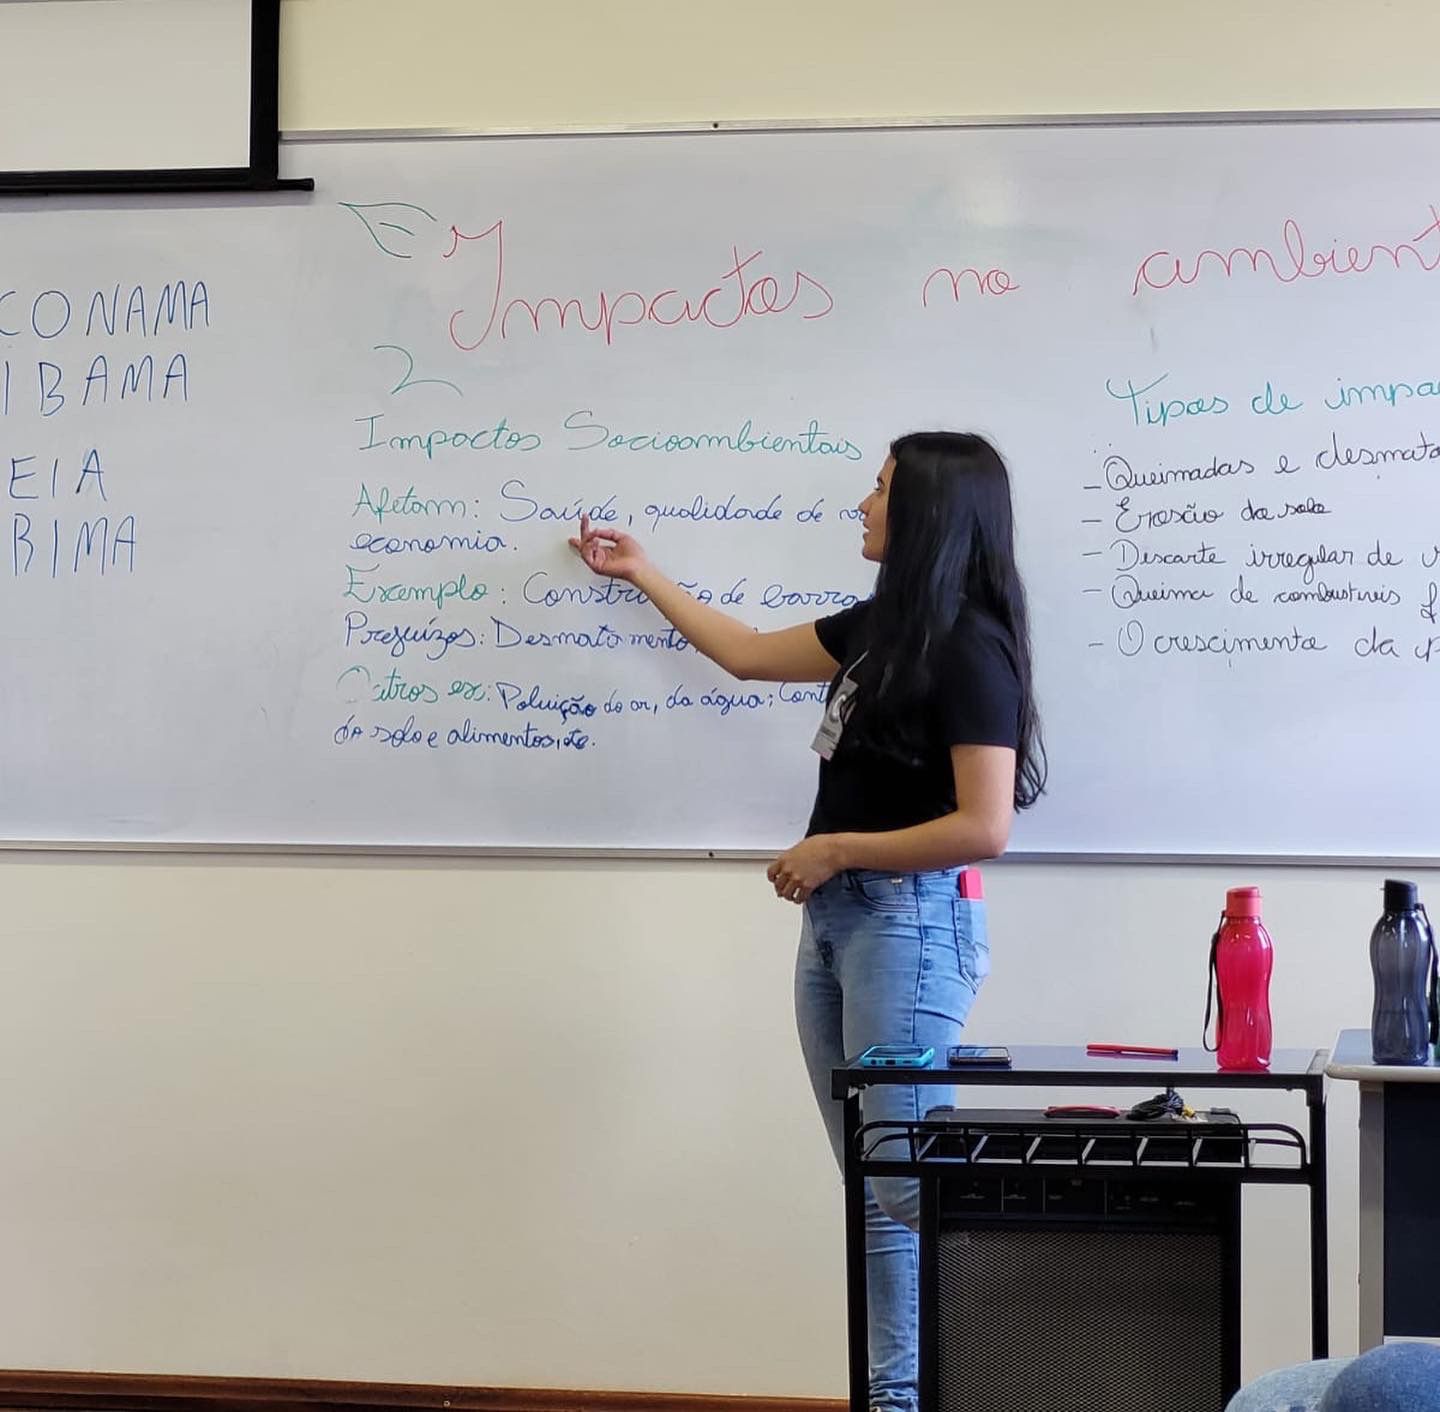 CONAMA
IBAMA
EIA
RIMA
Impactos no ambient
Impactos Socioambientais
Afetam: Saúde, qualidade de
economia.
Exemplo: de barra
Prejuízos: Desmatamento
Outros ex: Poluição do ar, da água; Cont
do solo e alimentos, etc.
Tipos de impa
- Queimadas e desmata
- Erosão do solo
- Descarte irregular de
- Queima de combustíveis f
- O crescimento da p